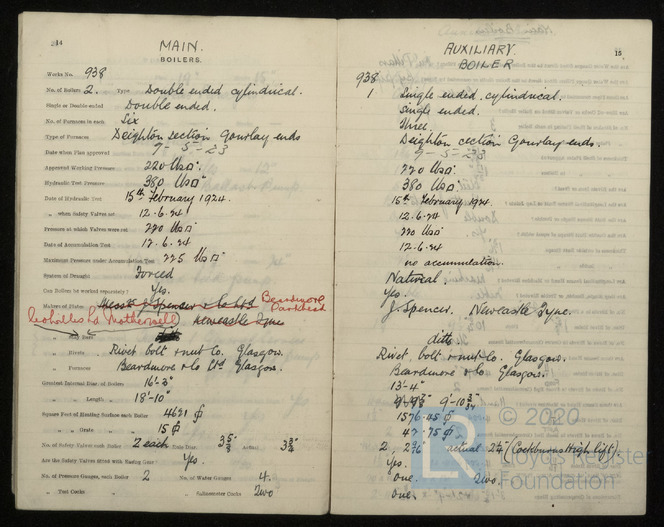 14
MAIN.
BOILERS.
Works No. 938
No. of Boilers 2. Type Double ended cylindrical.
Single or Double-ended Double ended.
No. of Furnaces in each Six
Type of Furnaces Deighton section Gourlay ends
Date when Plan approved 9-5-23
Approved Working Pressure 220 lbs□".
Hydraulic Test Pressure 380 lbs□"
Date of Hydraulic Test 15th February 1924.
„ when Safety Valves set 12.6.24
Pressure at which Valves were set 220 lbs□"
Date of Accumulation Test 12.6.24
Maximum Pressure under Accumulation Test 225 lbs□"
System of Draught Forced
Can Boilers be worked separately? Yes.
Makers of Plates Messrs J. Spencer & Co Ltd Beardmore
Parkhead
Colvilles Ld Motherwell Newcastle Tyne
„ Stay Bars
„ Rivets Rivet bolt & nut Co. Glasgow.
„ Furnaces Beardmore & Co Ltd Glasgow.
Greatest Internal Diam. of Boilers 16'-3"
„ „ Length 18'-10"
Square Feet of Heating Surface each Boiler 4621 ф
„ „ Grate „ 15 ф
No. of Safety Valves each Boiler 2 each Rule Diam. 3 5/8 Actual 3 3/4"
Are the Safety Valves fitted with Easing Gear Yes.
No. of Pressure Gauges, each Boiler 2 No. of Water Gauges 4.
„ Test Cocks „ Salinometer Cocks Two
15
AUXILIARY.
BOILER
938
1 Single ended. cylindrical.
Single ended.
Three.
Deighton section Gourlay ends.
9-5-23
220 lbs□"
380 lbs□".
15th February 1924.
12.6.24
220 lbs□"
12.6.24
no accumulation.
Natural.
Yes.
J. Spencer. Newcastle Tyne.
ditto
Rivet bolt & nut Co. Glasgow.
Beardmore & Co. Glasgow.
13-4"
9'-10 3/4"
1576.45 ф
47.75 ф
2, actual 2 1/4" (Cockburns High lift)
Yes.
one. Two.
one.
© 2020
LR
Lloyd's Register
Foundation